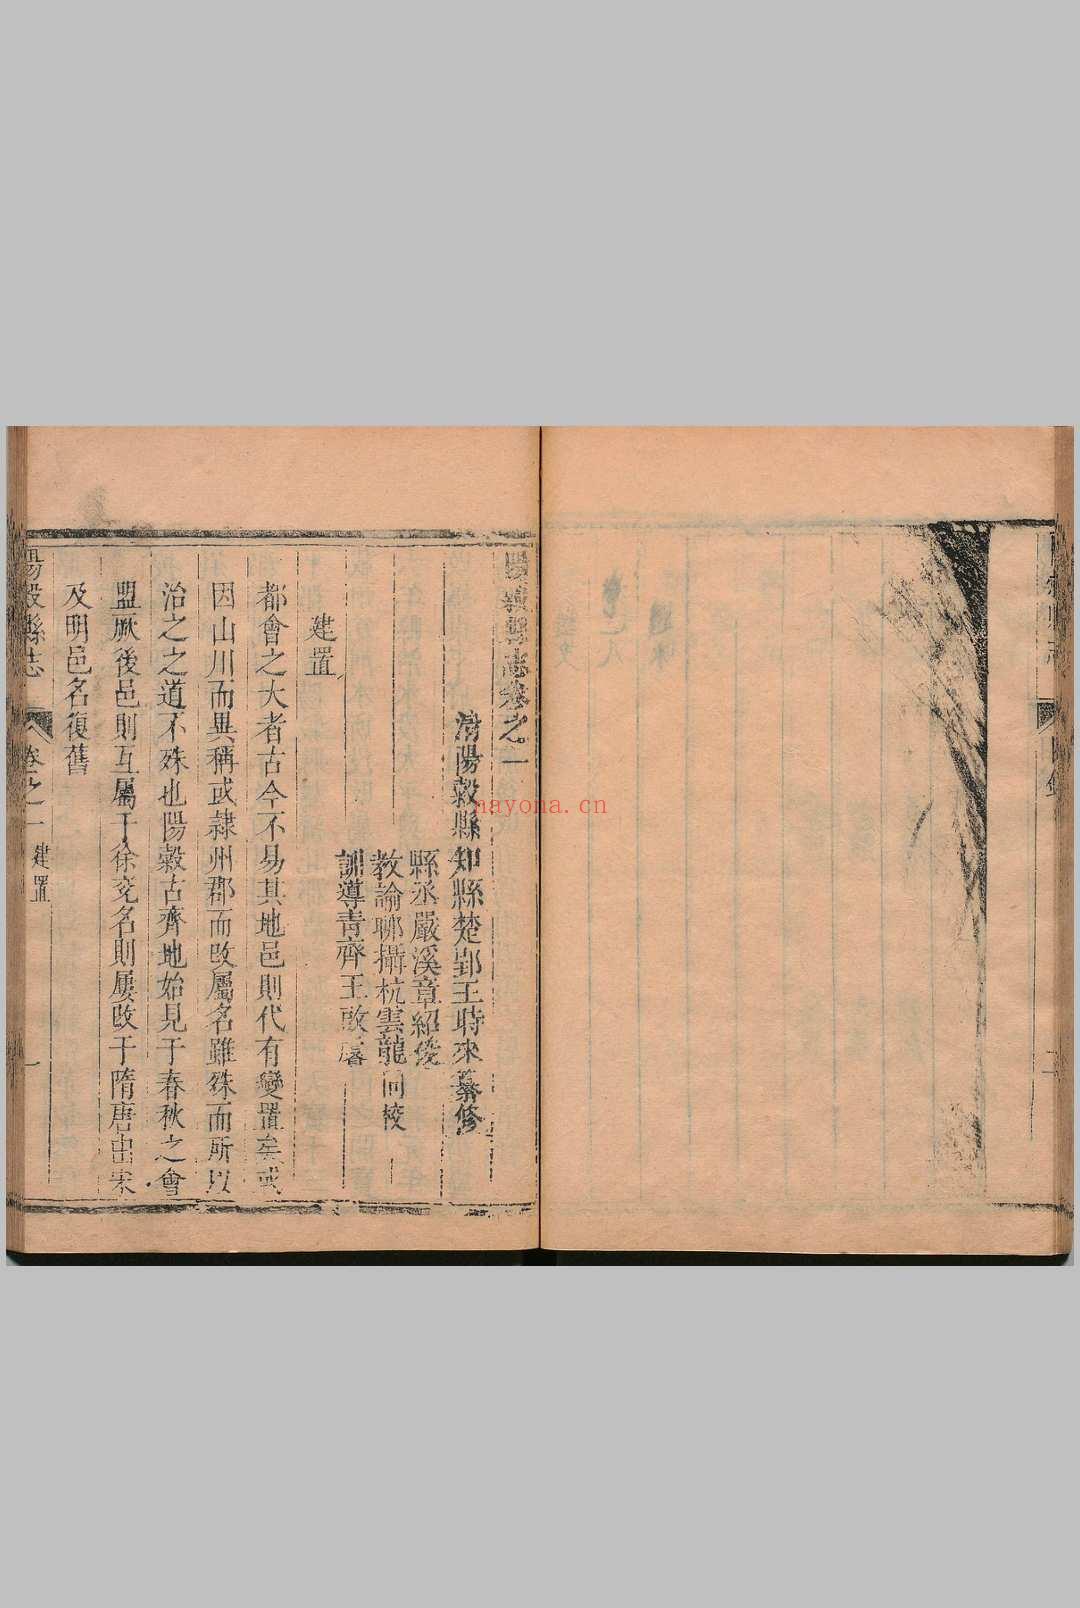 陽穀縣志卷之一
清陽穀縣知縣楚郢王時來纂修
縣丞嚴溪章紹俊
教諭聊攝杭雲龍同校
訓導青齊王政
建置
都會之大者古今不易其地邑則代有變置矣或
因山川而異稱或隸州郡而改屬名雖殊而所以
治之之道不殊也陽穀古齊地始見于春秋之會
盟厥後邑則互屬于徐兗名則屢改于隋唐由宋
及明邑名復舊
陽穀縣志 卷之一 建置 一
nayona.cn